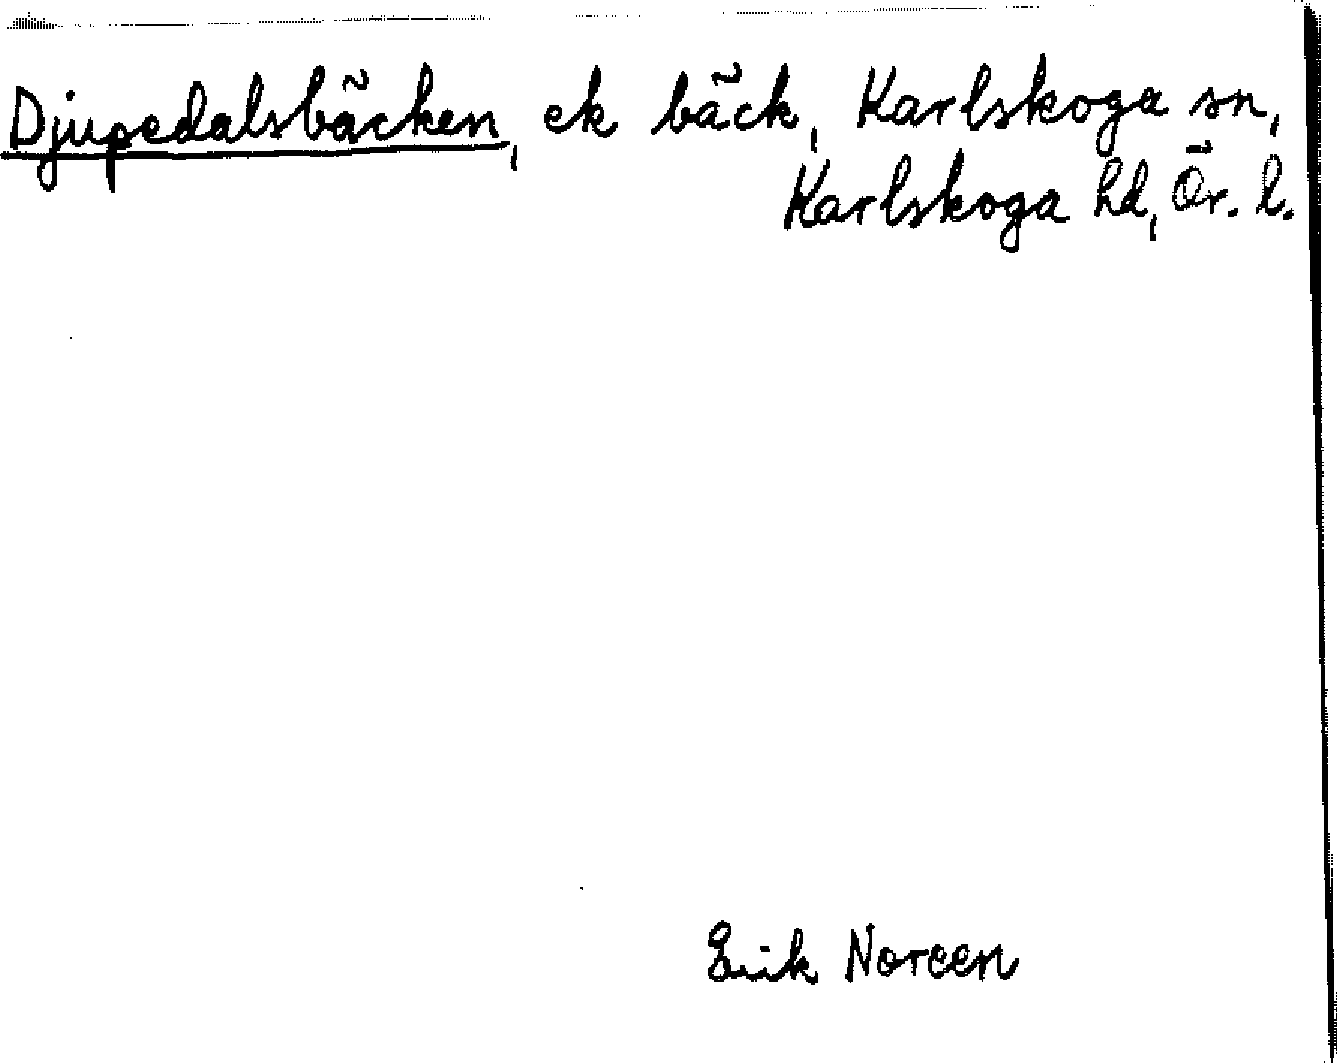 Djupedalsbäcken, ek bäck, Karlskoga sn,
Karlskoga hd, Ör. l.
Erik Noreen